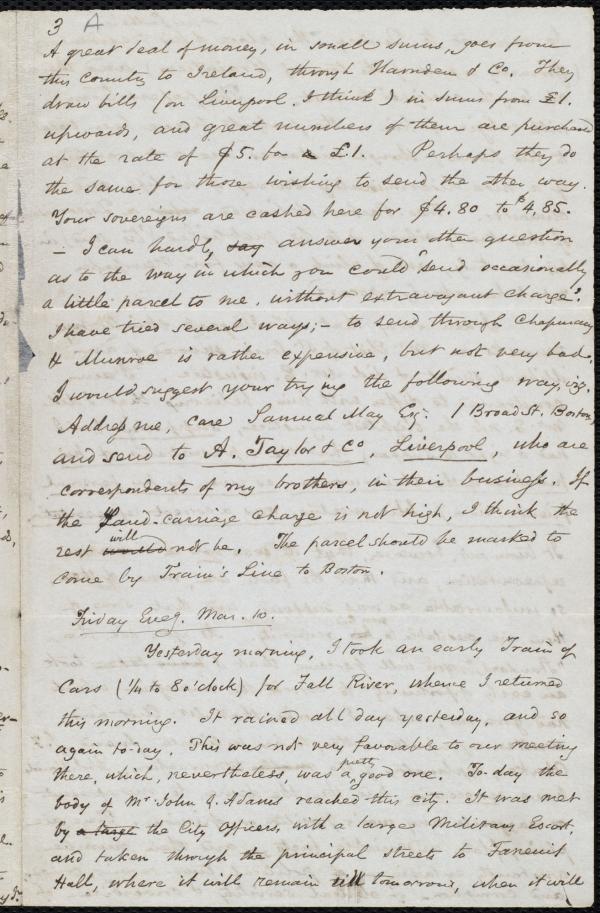 3 A
A great deal of money, in small sums, goes from
this country to Ireland, through Harnden & Co. They
draw bills (on Liverpool, I think) in sums from £1.
upwards, and great numbers of them are purchased
at the rate of $5. for a £1. Perhaps they do
the same for those wishing to send the other way.
Your sovereigns are cashed here for $4.80 to $4.85.
– I can hardly say answer your other question
as to the way in which you could send occasionally
a little parcel to me, without extravagant charge.
I have tried several ways; – to send through Chapman
& Munroe is rather expensive, but not very bad.
I would suggest your trying the following way, viz.
Address me, care Samuel May Esq. 1 Broad St. Boston,
and send to A. Taylor & Co, Liverpool, who are
correspondents of my brothers, in their business. If
the Land-carriage charge is not high, I think the
will
rest would not be. The parcel should be marked to
come by Train's Line to Boston.
Friday Eveg. Mar. 10.
Yesterday morning, I took an early Train of
Cars (1/4 to 8 o'clock) for Fall River, whence I returned
this morning. It rained all day yesterday, and so
again to-day. This was not very favorable to our meeting
pretty
there, which, nevertheless, was a good one. To-day the
body of Mr. John Q. Adams reached this city. It was met
by a large the City Officers, with a large Military Escort,
and taken through the principal streets to Faneuil
Hall, where it will remain till tomorrow, when it will